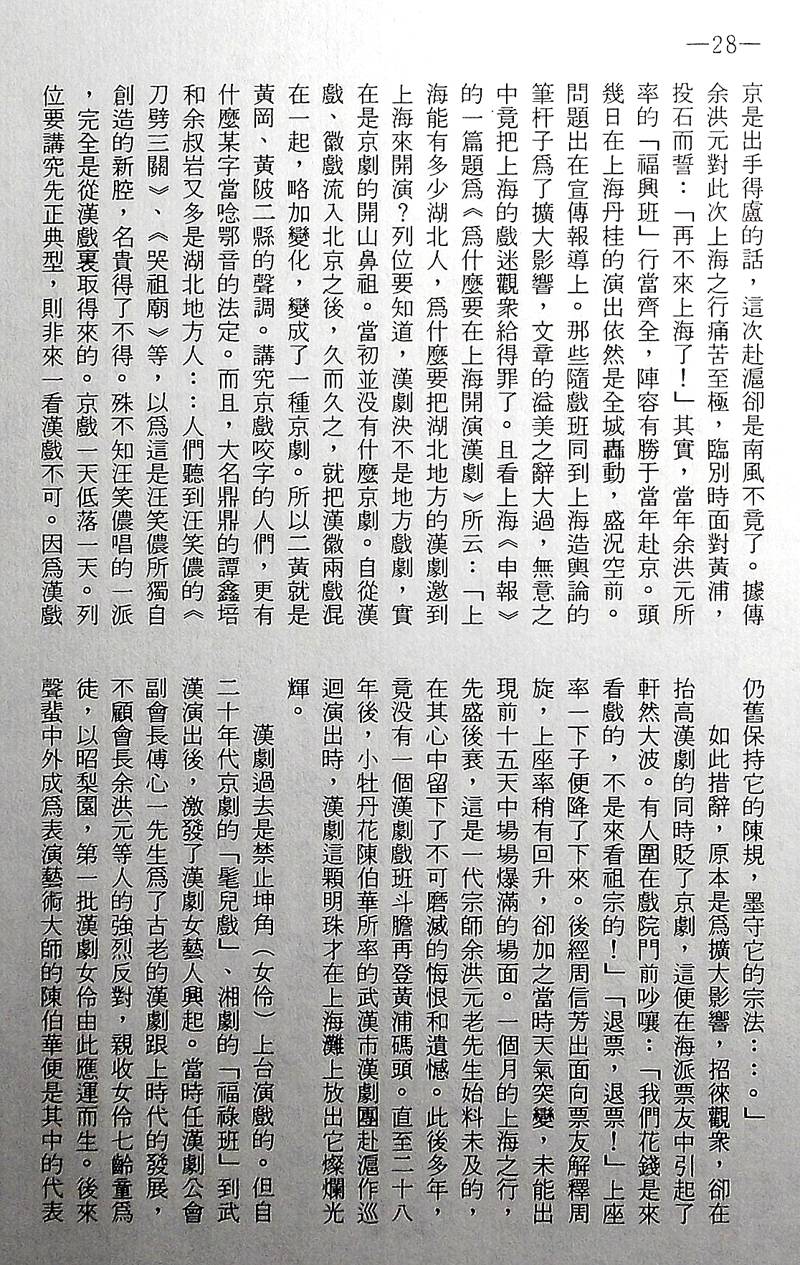 —28—
京是出手得盧的話，這次赴滬卻是南風不竟了。據傳
余洪元對此次上海之行痛苦至極，臨別時面對黃浦，
投石而誓：「再不來上海了！」其實，當年余洪元所
率的「福興班」行當齊全，陣容有勝于當年赴京。頭
幾日在上海丹桂的演出依然是全城轟動，盛況空前。
問題出在宣傳報導上。那些隨戲班同到上海造輿論的
筆杆子爲了擴大影響，文章的溢美之辭大過，無意之
中竟把上海的戲迷觀衆給得罪了。且看上海《申報》
的一篇題爲《爲什麼要在上海開演漢劇》所云：「上
海能有多少湖北人，爲什麼要把湖北地方的漢劇邀到
上海來開演？列位要知道，漢劇決不是地方戲劇，實
在是京劇的開山鼻祖。當初並没有什麼京劇。自從漢
戲、徽戲流入北京之後，久而久之，就把漢徽兩戲混
在一起，略加變化，變成了一種京劇。所以二黃就是
黃岡、黃陂二縣的聲調。講究京戲咬字的人們，更有
什麼某字當唸鄂音的法定。而且，大名鼎鼎的譚鑫培
和余叔岩又多是湖北地方人：：人們聽到汪笑儂的《
刀劈三關》、《哭祖廟》等，以爲這是汪笑儂所獨自
創造的新腔，名貴得了不得。殊不知汪笑儂唱的一派
，完全是從漢戲裏取得來的。京戲一天低落一天。列
位要講究先正典型，則非來一看漢戲不可。因爲漢戲
仍舊保持它的陳規，墨守它的宗法：：。」
如此措辭，原本是爲擴大影響，招徠觀衆，卻在
抬高漢劇的同時貶了京劇，這便在海派票友中引起了
軒然大波。有人圍在戲院門前吵嚷：「我們花錢是來
看戲的，不是來看祖宗的！」「退票，退票！」上座
率一下子便降了下來。後經周信芳出面向票友解釋周
旋，上座率稍有回升，卻加之當時天氣突變，未能出
現前十五天中場場爆滿的場面。一個月的上海之行，
先盛後衰，這是一代宗師余洪元老先生始料未及的，
在其心中留下了不可磨滅的悔恨和遺憾。此後多年，
竟没有一個漢劇戲班斗膽再登黃浦碼頭。直至二十八
年後，小牡丹花陳伯華所率的武漢市漢劇團赴滬作巡
迴演出時，漢劇這顆明珠才在上海灘上放出它燦爛光
輝。
漢劇過去是禁止坤角（女伶）上台演戲的。但自
二十年代京劇的「髦兒戲」、湘劇的「福祿班」到武
漢演出後，激發了漢劇女藝人興起。當時任漢劇公會
副會長傅心一先生爲了古老的漢劇跟上時代的發展，
不顧會長余洪元等人的強烈反對，親收女伶七齡童爲
徒，以昭梨園，第一批漢劇女伶由此應運而生。後來
聲蜚中外成爲表演藝術大師的陳伯華便是其中的代表